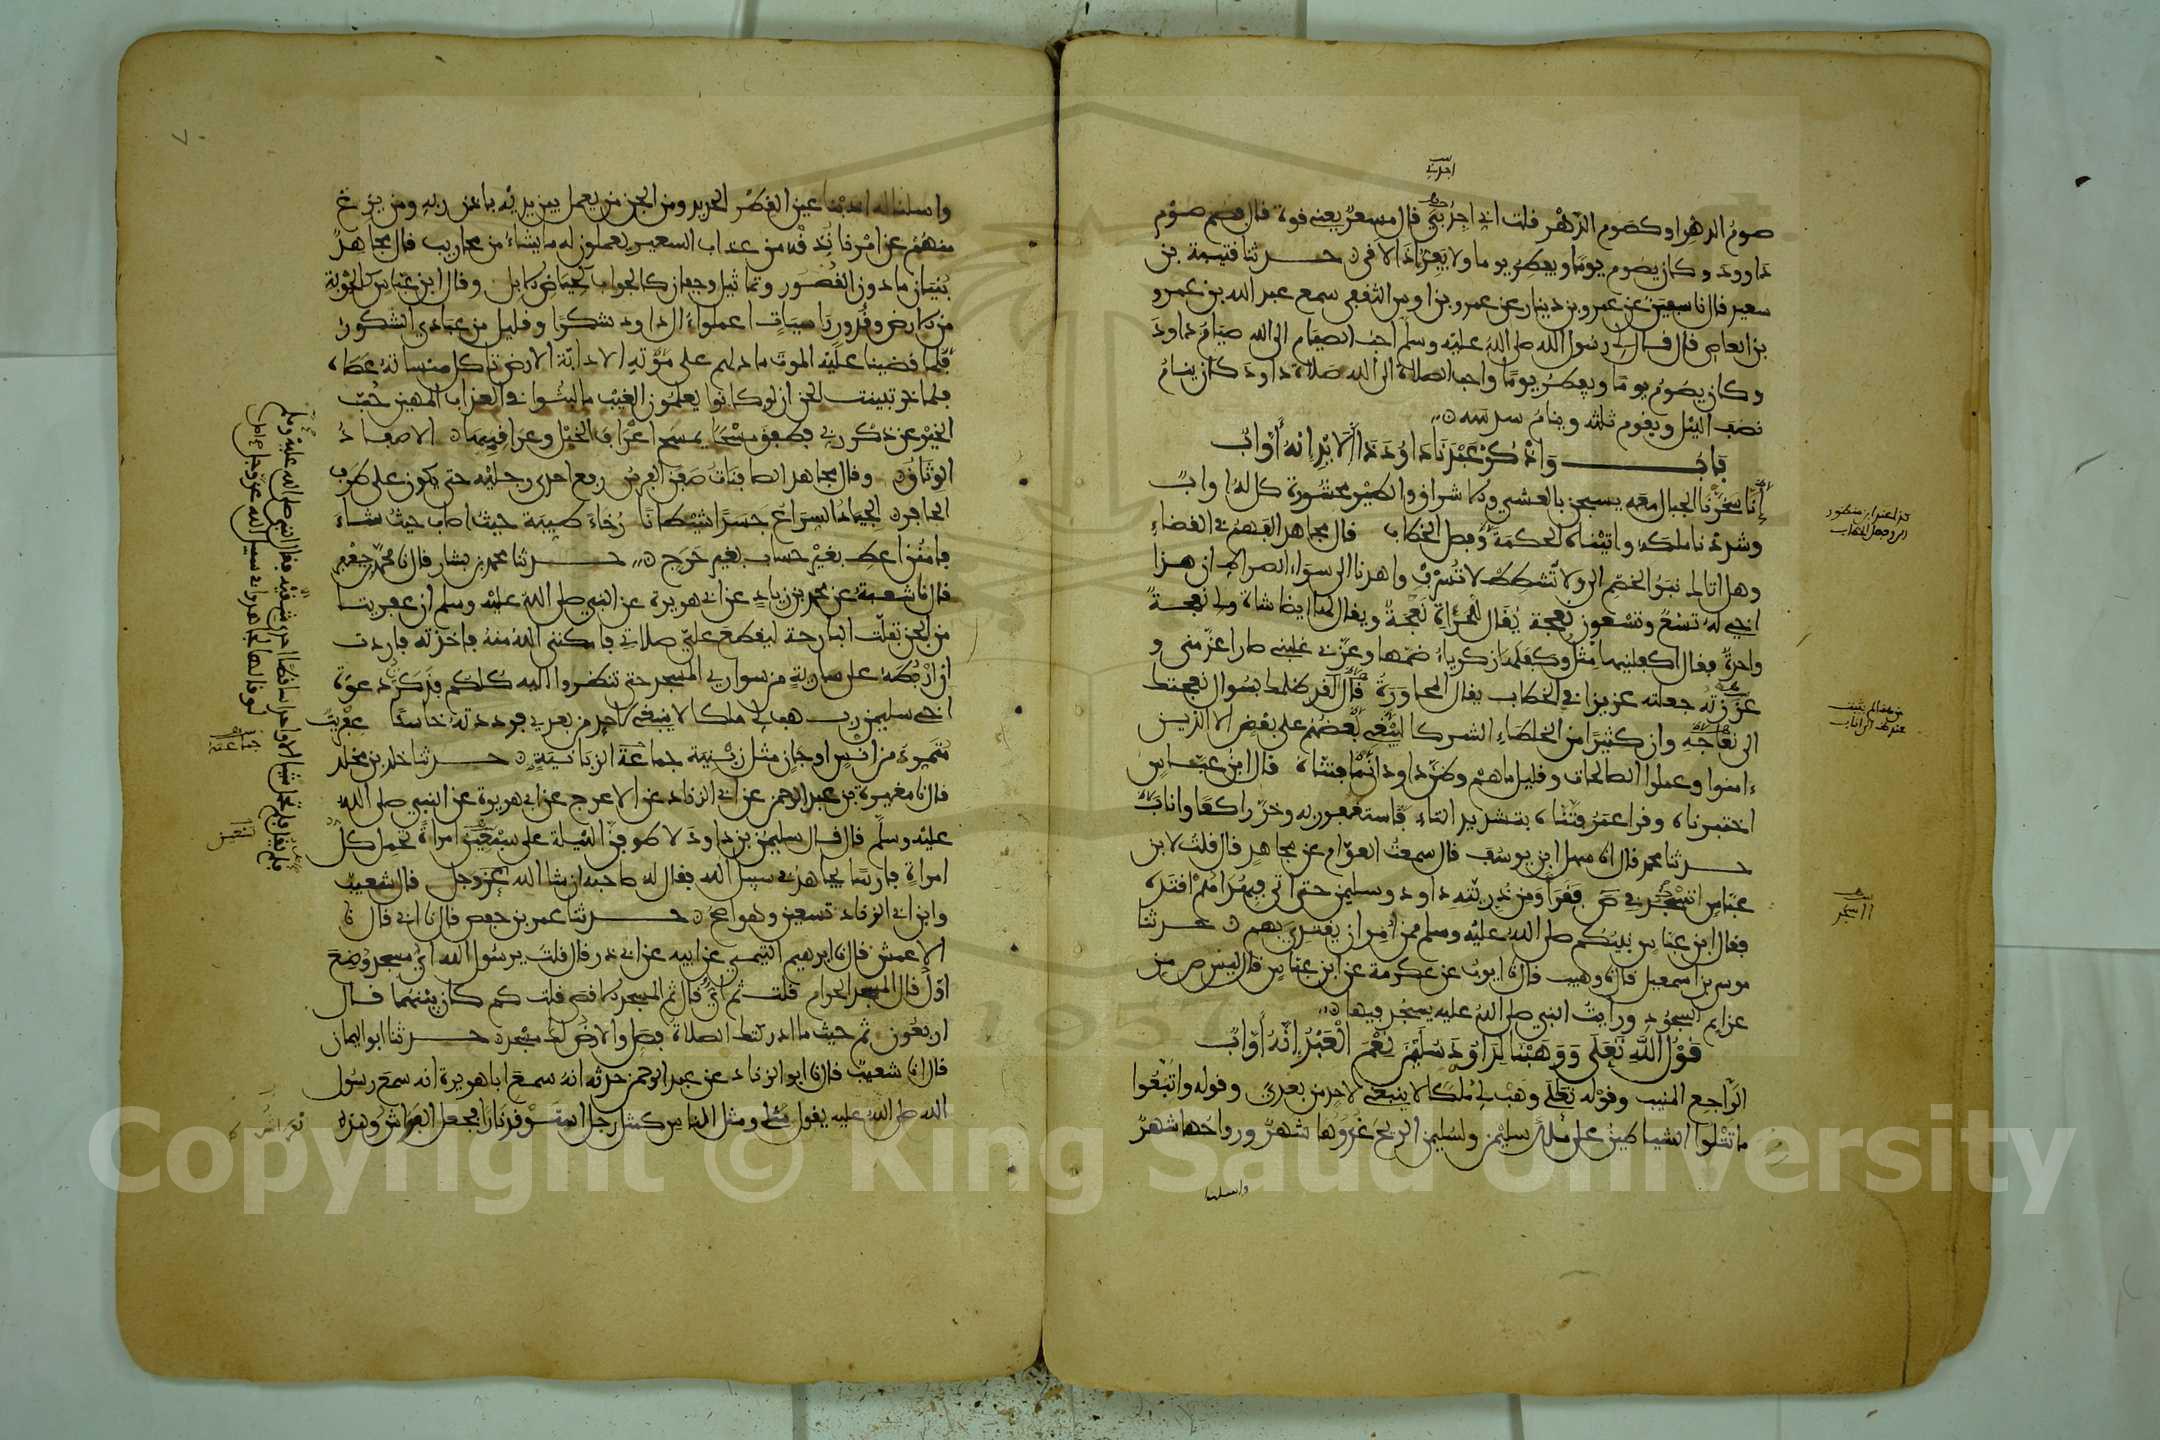 صوم الدهر او كصوم الدهر قلت اني اجد بي قال مسعر يعني قوة قال فصم صوم
داوود وكان يصوم يوما ويفطر يوما ولا يفر اذا لاقى حدثنا قتيبة بن
سعيد قال نا سفين عن عمرو بن دينار عن عمرو بن اوس الثقفي سمع عبد الله بن عمرو
بن العاص قال قال لي رسول الله صلى الله عليه وسلم احب الصيام الى الله صيام داود
وكان يصوم يوما ويفطر يوما واحب الصلاة الى الله صلاة داود كان ينام
نصف الليل ويقوم ثلثه وينام سدسه
باب واذكر عبدنا داوود ذا الايد انه أواب
إنا سخرنا الجبال معه يسبحن بالعشي والاشراق والطير محشورة كل له اواب
وشددنا ملكه واتيناه الحكمة وفصل الخطاب قال مجاهد الفهم في القضاء
وهل اتاك نبؤ الخصم الى ولا تشطط لا تسرف واهدنا الى سواء الصراط ان هذا
اخي له تسع وتسعون نعجة يقال للمرأة نعجة ويقال لها ايضا شاة ولي نعجة
واحدة فقال اكفلنيها مثل وكفلها زكرياء ضمها وعزني غلبني صار اعز مني و
عززته جعلته عزيزا في الخطاب يقال المحاورة قال لقد ظلمك بسؤال نعجتك
الى نعاجه وان كثيرا من الخلطاء الشركا ليبغي بعضهم على بعض الا الذين
ءامنوا وعملوا الصالحات وقليل ما هم وظن داود انما فتناه قال ابن عباس
اختبرناه وقرا عمر فتناه بتشديد التاء فاستغفر ربه وخر راكعا واناب
حدثنا محمد قال نا سهل ابن يوسف قال سمعت العوام عن مجاهد قال قلت لابن
عباس انسجد في ص فقرأ ومن ذريته داود وسليمن حتى اتى فبهداهم اقتده
فقال ابن عباس نبيكم صلى الله عليه وسلم ممن أمر ان يقتدي بهم حدثنا
موسى بن اسمعيل قال نا وهيب قال نا ايوب عن عكرمة عن ابن عباس قال ليس ص من
عزايم السجود ورايت النبي صلى الله عليه يسجد فيها
قول الله تعلى ووهبنا لداوود سليمن نعم العبد إنه أواب
الراجع المنيب وقوله تعلى وهب لي ملكا لا ينبغي لاحد من بعدي وقوله واتبعوا
ما تتلوا الشياطين على ملك سليمن ولسليمن الريح غدوها شهر ورواحها شهر
واسلنا
واسلنا له اذبنا عين القطر الحديد ومن الجن من يعمل بين يديه باذن ربه ومن يزغ
منهم عن امرنا نذقه من عذاب السعير يعملون له ما يشاء من محاريب قال مجاهد
بنيان ما دون القصور وتماثيل وجفان كالجواب كالحياض للابل وقال ابن عباس كالجوبة
من الارض وقدور راسيات اعملوا ءال داود شكرا وقليل من عبادي الشكور
فلما قضينا عليه الموت ما دلهم على موته الا دابة الارض تاكل منساته عصاه
فلما خر تبينت الجن ان لو كانوا يعلمون الغيب ما لبثوا في العذاب المهين حب
الخير عن ذكر ربي فطفق مسحا يمسح اعراف الخيل وعراقيبها الاصفاد
الوثاق وقال مجاهد الصافنات صفن الفرس رفع احدى رجليه حتى تكون على طرف
الحافر الجياد السراع جسدا شيطانا رخاء طيبة حيث اصاب حيث شاء
فامنن اعط بغير حساب بغير حرج حدثنا محمد بن بشار قال نا محمد بن جعفر
قال نا شعبة عن محمد بن زياد عن ابي هريرة عن النبي صلى الله عليه وسلم ان عفريتا
من الجن تفلت البارحة ليقطع علي صلاتي فامكنني الله منه فاخذته فاردت
ان اربطه على سارية من سواري المسجد حتى تنظروا اليه كلكم فذكرت دعوة
اخي سليمن رب هب لي ملكا لا ينبغي لاحد من بعدي فرددته خاسئا عفريت
متمرد من انس او جان مثل زبنية جماعة الزبانية حدثنا خلد بن مخلد
قال نا مغيرة بن عبد الرحمن عن ابي الزناد عن الاعرج عن ابي هريرة عن النبي صلى الله
عليه وسلم قال قال سليمن بن داود لاطوفن الليلة على سبعين امراة تحمل كل
امراة فارسا يجاهد في سبيل الله فقال له صاحبه ان شا الله عز وجل قال شعيب
وابن ابي الزناد تسعين وهو اصح حدثنا عمر بن حفص قال نا ابي قال نا
الاعمش قال نا ابرهيم التيمي عن ابيه عن ابي ذر قال قلت يرسول الله اي مسجد وضع
اول قال المسجد الحرام قلت ثم اي قال ثم المسجد الاقصى قلت كم كان بينهما قال
اربعون ثم حيث ما ادركتك الصلاة فصل والارض لك مسجد حدثنا ابو اليمان
قال انا شعيب قال نا ابو الزناد عن عبد الرحمن حدثه انه سمع ابا هريرة انه سمع رسول
الله صلى الله عليه يقول مثلي ومثل الناس كمثل رجل استوقد نارا فجعل الفراش وهذه
Copyright © King Saud University
1957